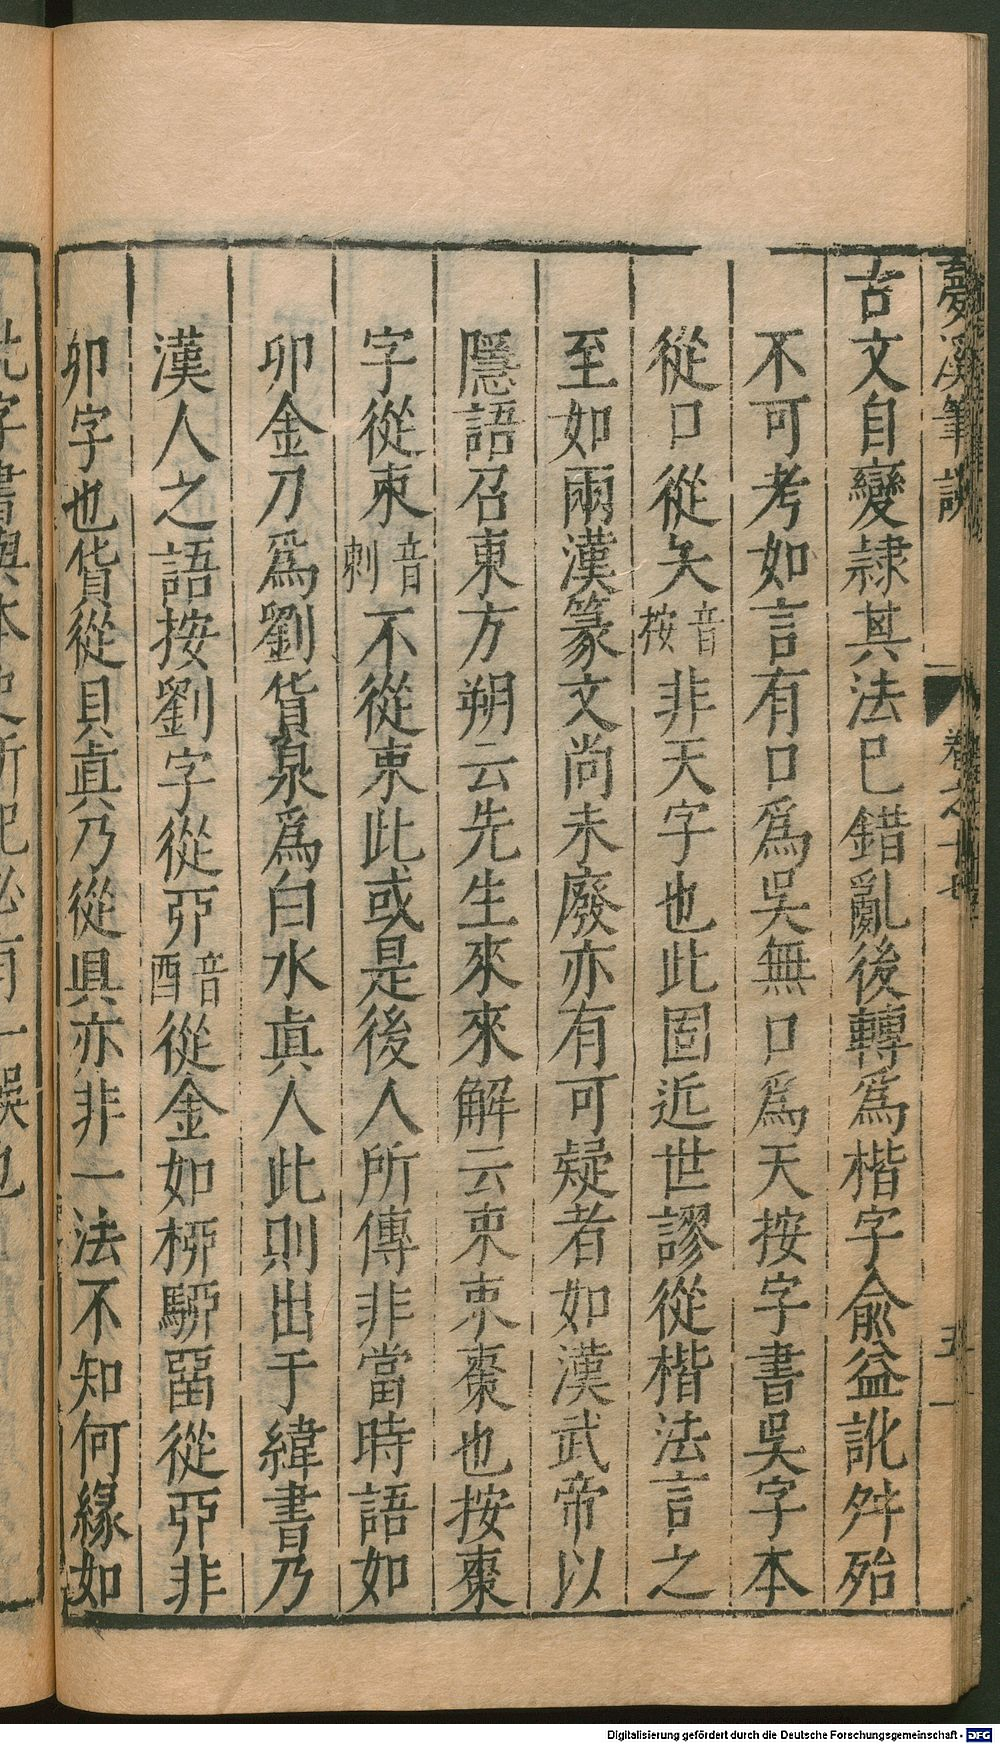 夢溪筆談
卷之十七
五
古文自變隷其法已錯亂後轉爲楷字愈益訛舛殆
不可考如言有口爲吳無口爲天按字書吳字本
從口從夨音按非天字也此固近世謬從楷法言之
至如兩漢篆文尚未廢亦有可疑者如漢武帝以
隱語召東方朔云先生來來解云朿朿棗也按棗
字從朿音刺不從來此或是後人所傳非當時語如
卯金刀爲劉貨泉爲白水眞人此則出于緯書乃
漢人之語按劉字從丣音酉從金如桺駵畱從丣非
卯字也貨從貝眞乃從具亦非一法不知何緣如
Digitalisierung gefördert durch die Deutsche Forschungsgemeinschaft - DFG